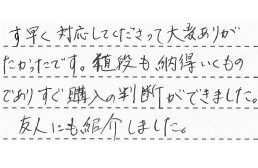 す早く対応してくださって大変ありが
たかったです。値段も納得いくもの
でありすぐ購入の判断ができました。
友人にも紹介しました。